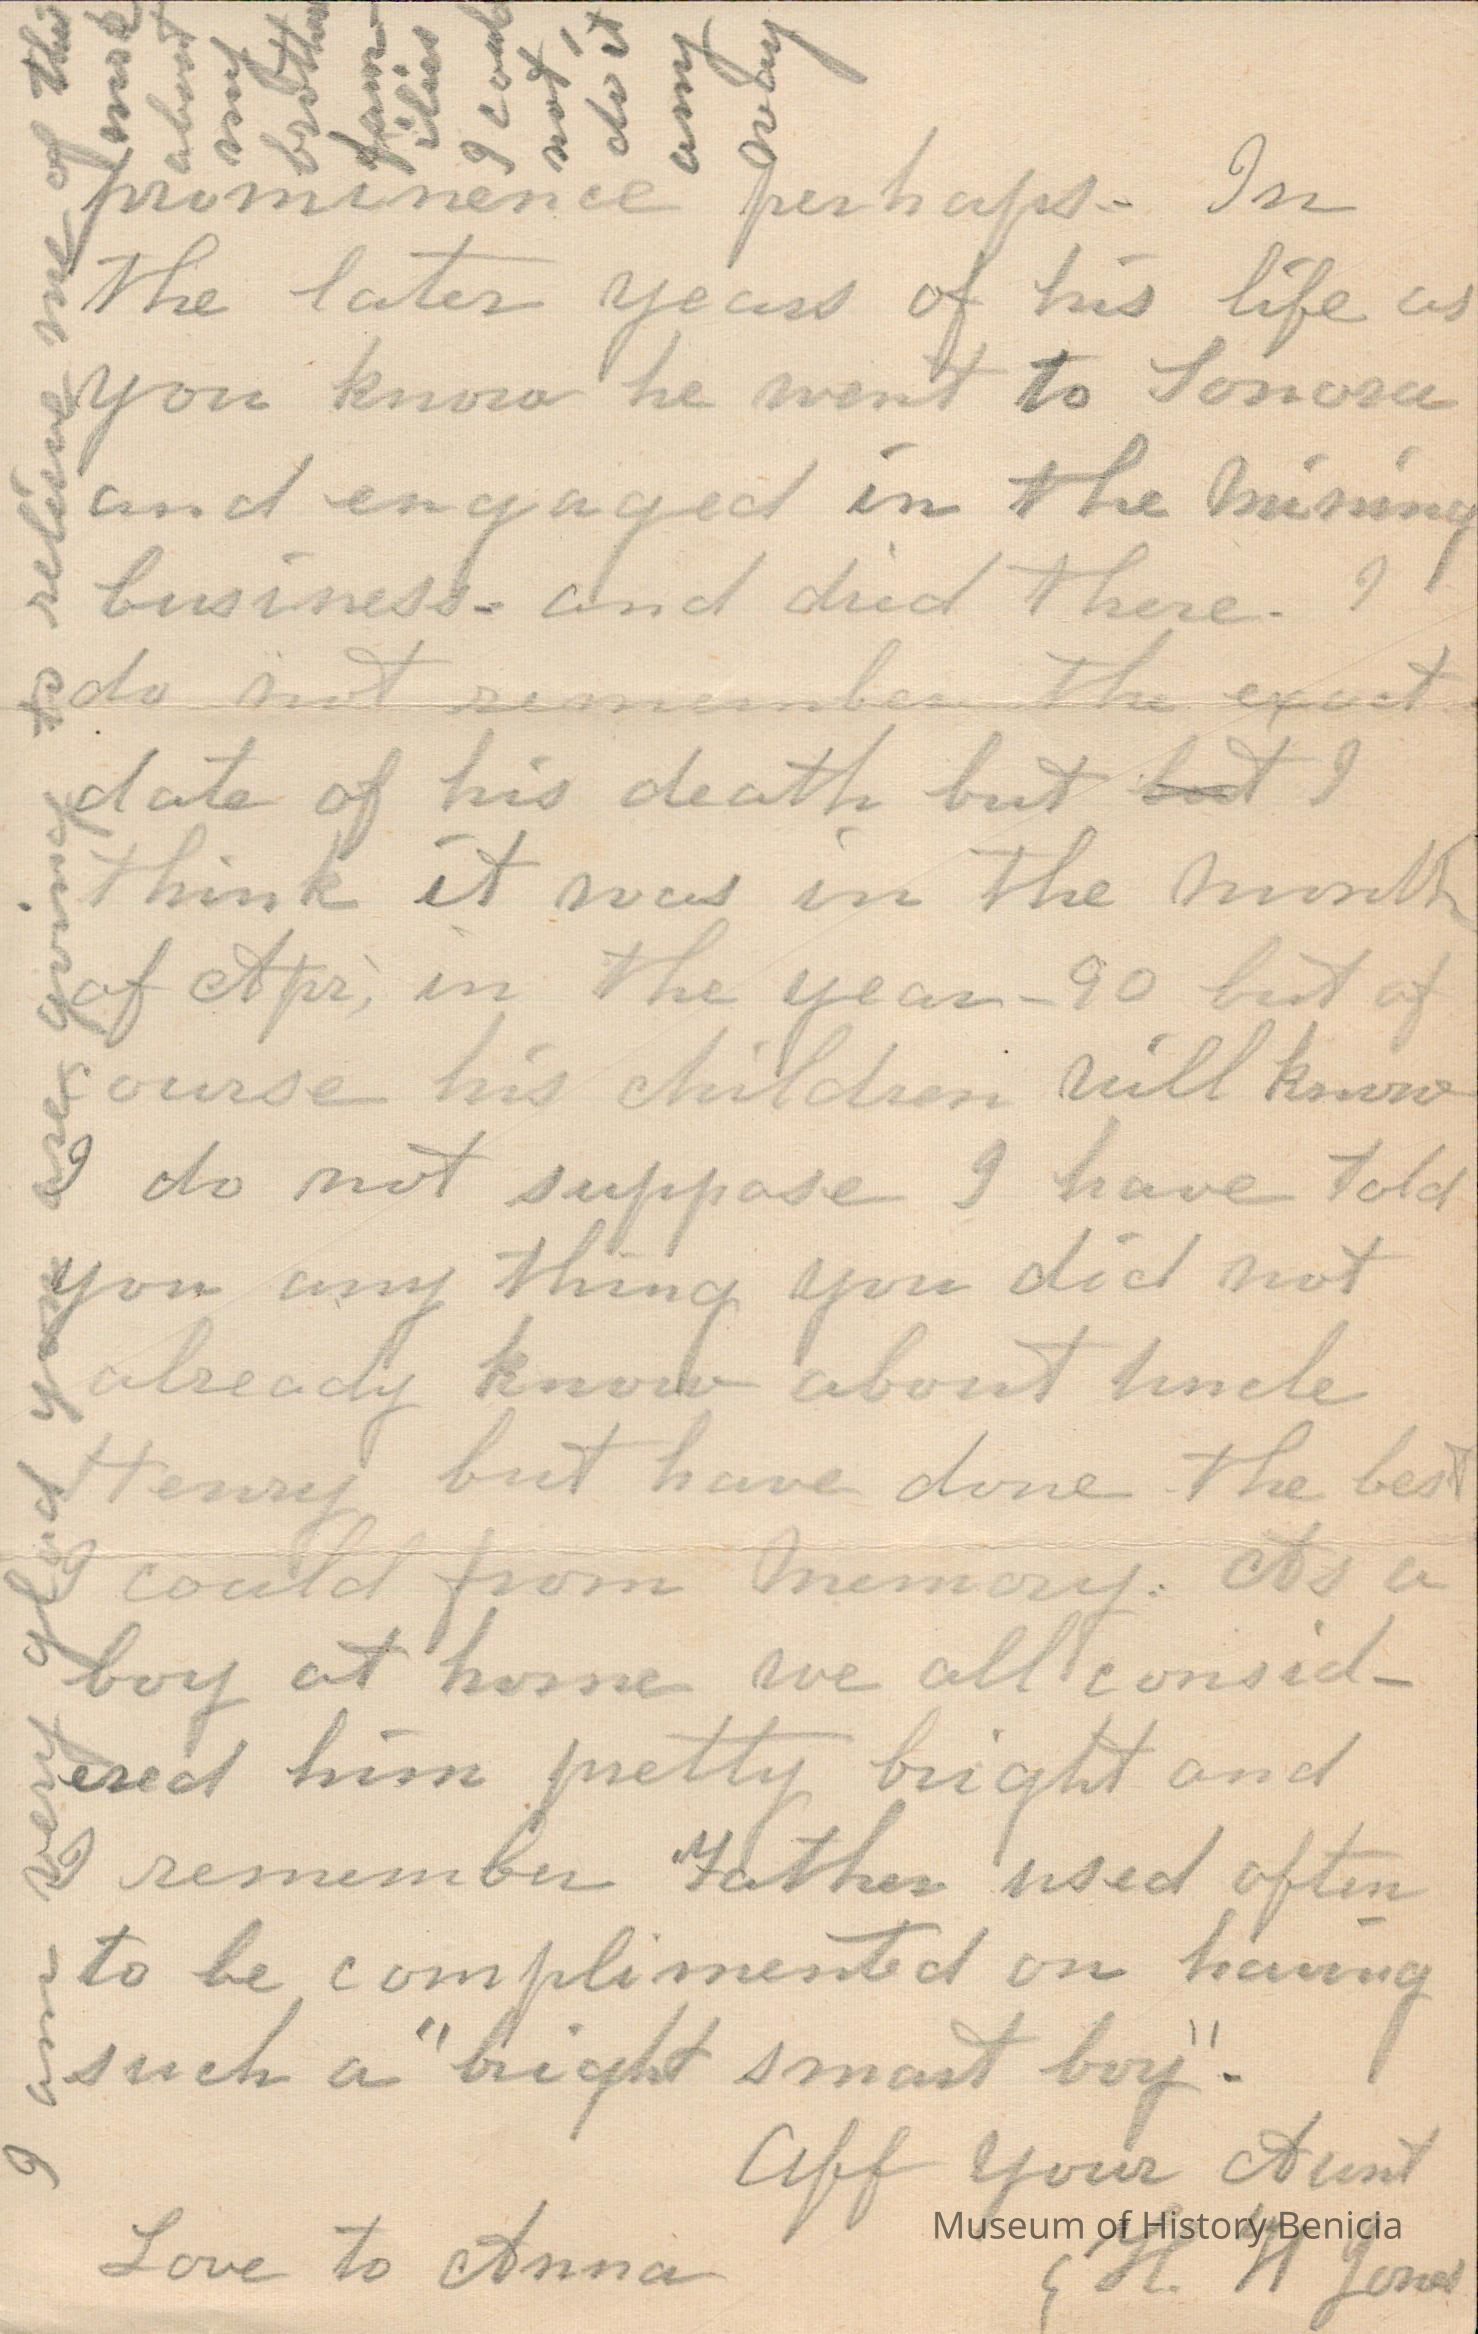 prominence perhaps- In
the later years of his life as
you know he went to Sonora
and engaged in the mining
business- and died there- I
do not remember the exact
date of his death but but I
think it was in the month
of Apr, in the year -90 but of
course his children will know
I do not suppose I have told
you any thing you did not
already know about Uncle
Henry but have done the best
I could from memory. As a
boy at home we all consid-
ered him pretty bright and
I remember Father used often
to be complimented on having
such a "bright smart boy".
Aff Your Aunt
H. W Jones
Love to Anna
I am very glad you are going to relieve me of this
work
about
my
brother
fam-
ilies
I could
not,
do it
any
way
Museum of History Benicia